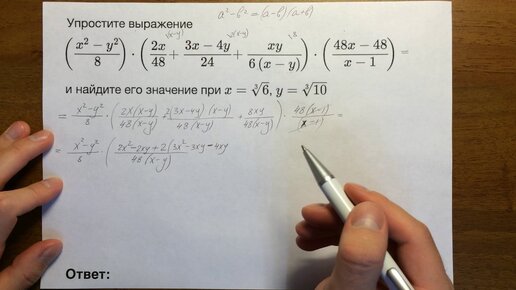 a² - b² = (a-b)(a+b)
Упростите выражение
\(x-y) \2(x-y) \8
((x² − y²)/8) · (2x/48 + (3x − 4y)/24 + xy/(6(x − y))) · ((48x − 48)/(x − 1)) =
и найдите его значение при x = ∛6, y = ∛10
= (x²-y²)/8 · (2x(x-y)/48(x-y) + 2(3x-4y)(x-y)/48(x-y) + 8xy/48(x-y)) · 48(x-1)/(x-1) =
= (x²-y²)/8 · (2x²-2xy+2(3x²-3xy-4xy/48(x-y)
Ответ: